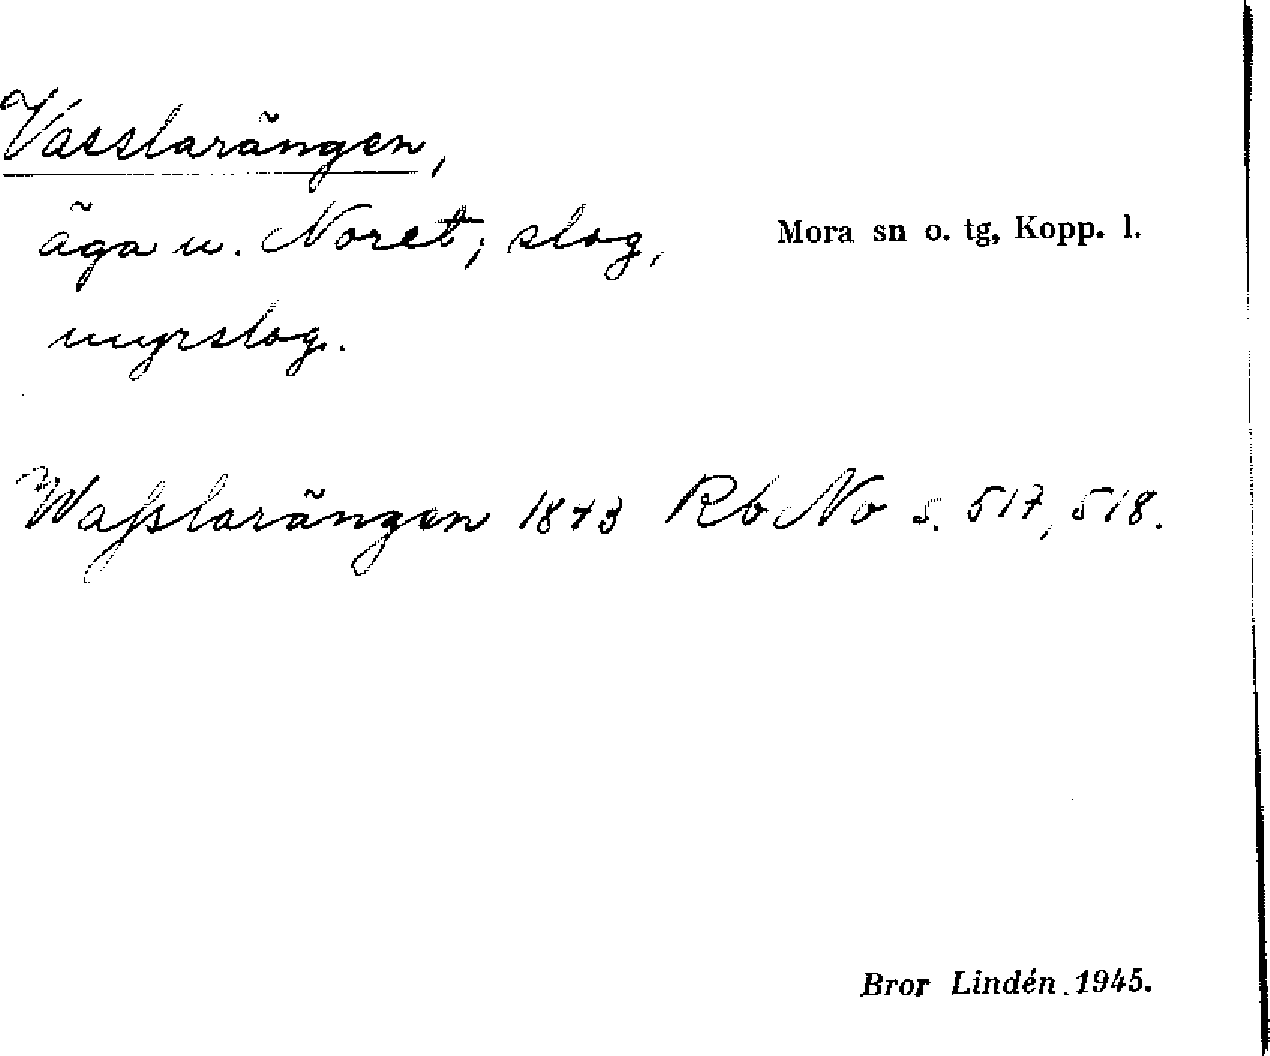 Vasslarängen,
äga u. Noret; slog,
myrslog.
Mora sn o. tg, Kopp. l.
Wasslarängen 1843 Rb No s. 517, 518.
Bror Lindén 1945.